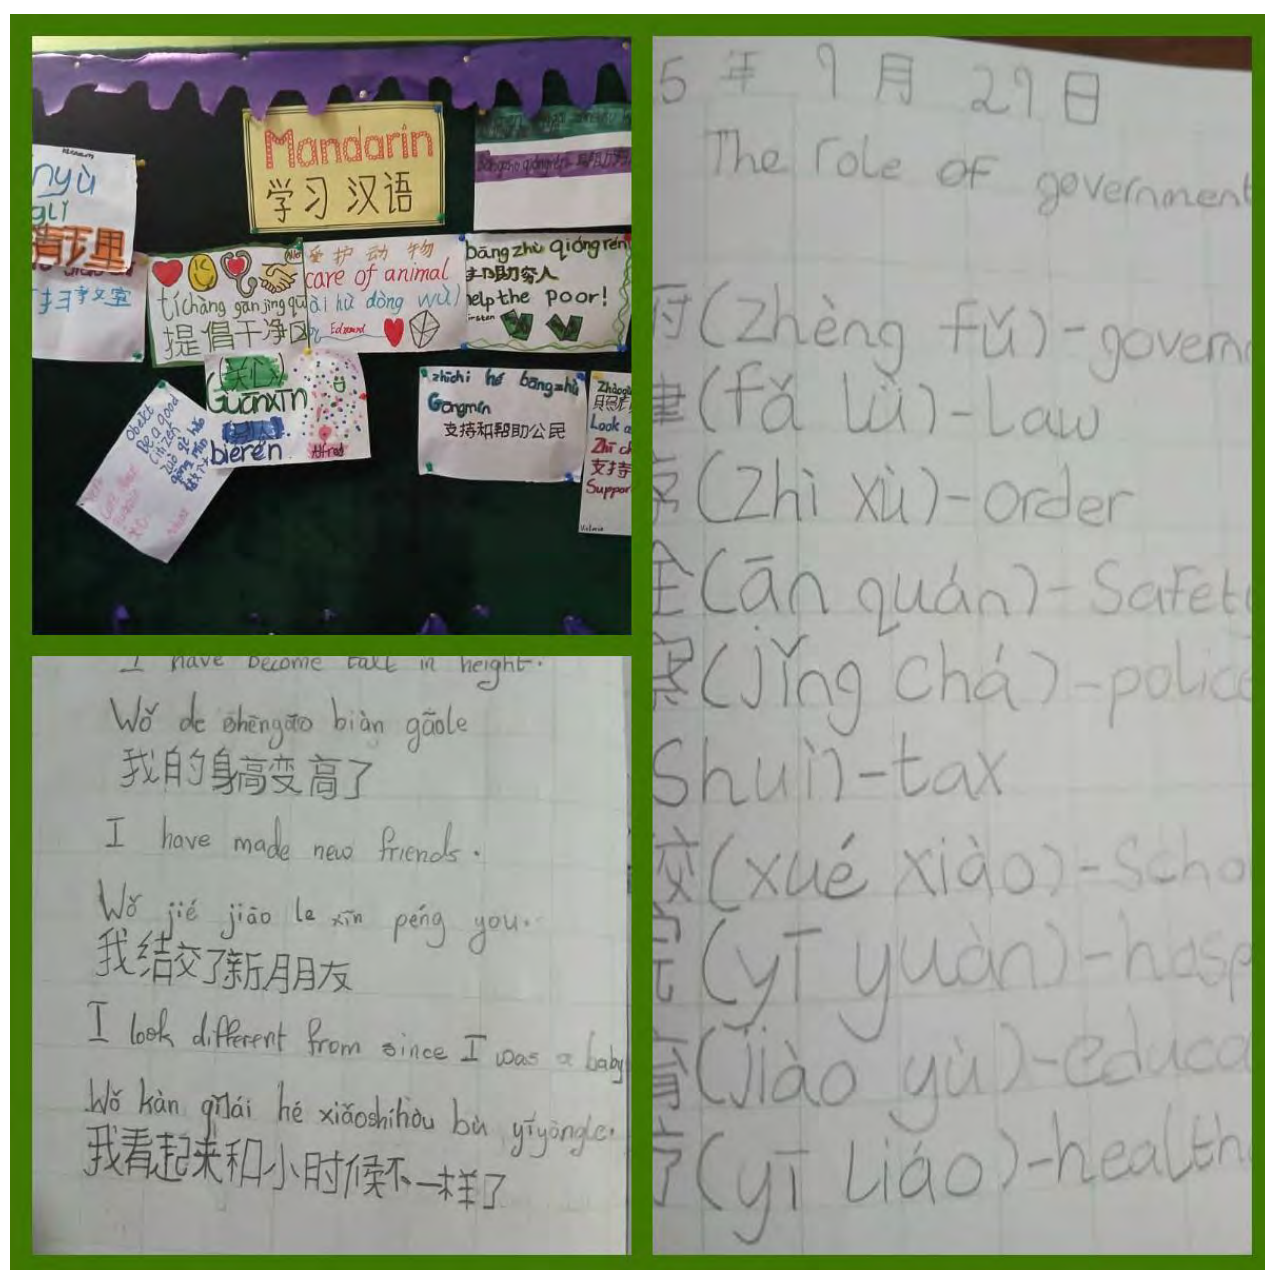 Mandarin
学习 汉语
nyù
gli
爱护动物
care of animal
ài hù dòng wù
By Edmund
tíchàng gānjìng qū
提倡干净区
bāng zhù qióng rén
助穷人
help the poor!
(关心)
Guānxīn
bierén
Alfred
zhīchí hé bāngzhù
Gōngmín
支持和帮助公民
Look a
支持
Suppor
Be a good
Citizen
zuò gè hǎo
gōng mín
I have become tall in height.
Wǒ de shēngāo biàn gāole
我的身高变高了
I have made new friends.
Wǒ jié jiāo le xīn péng you.
我结交了新朋友
I look different from since I was a baby
Wǒ kàn qǐlái hé xiǎoshíhòu bù yīyàngle.
我看起来和小时候不一样了
5年9月29日
The role of government
府(zhèng fǔ)-governm
律(fǎ lǜ)-Law
序(zhì xù)-order
全(ān quán)-Safety
察(jǐng chá)-police
Shuì)-tax
校(xué xiào)-Scho
院(yī yuàn)-hosp
育(jiào yù)-educa
疗(yī liáo)-health